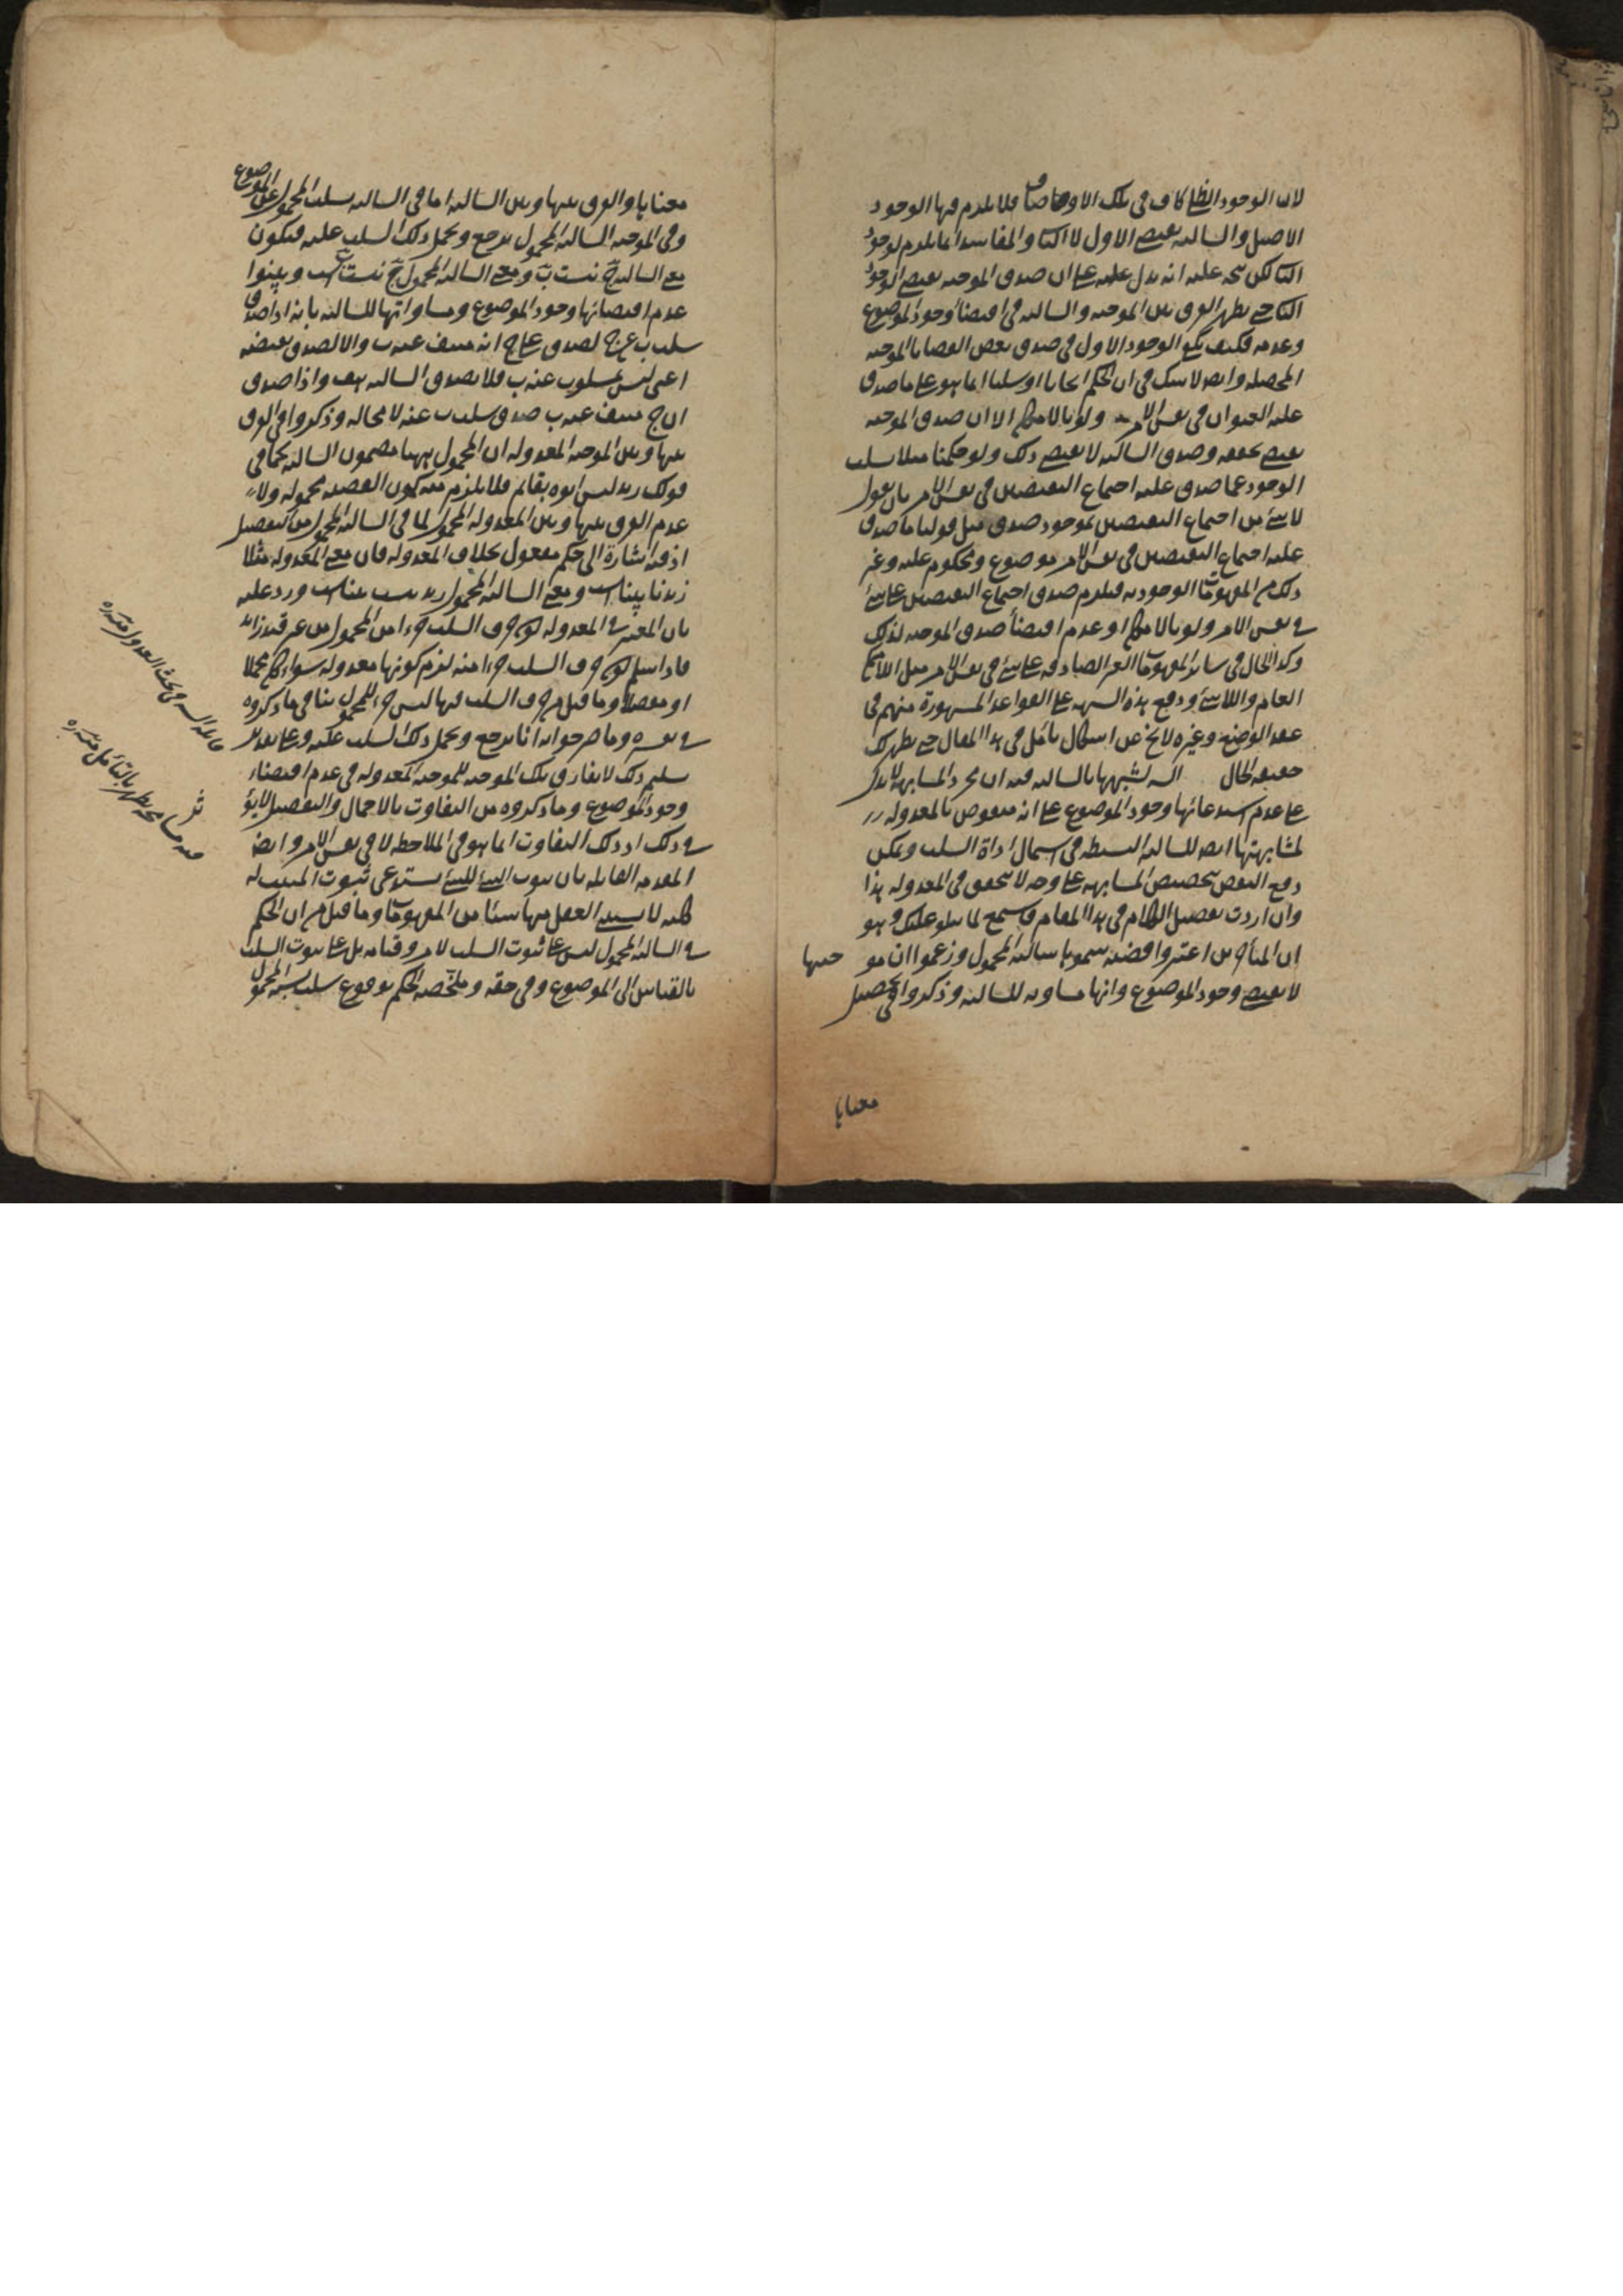 لان الوجود الظلي كاف في تلك الاوصاف فلا يلزم فيها الوجود
الاصيل والسالبة يقتضي الاول لا الثا والمفاسد انما يلزم لوجود
الثا لكن يتجه عليه انه يدل عليه على ان صدق الموجبه يقتضي الوجود
الثا حتى يظهر الفرق بين الموجبه والسالبه في اقتضا وجود الموضوع
وعدمه فكيف يكفي الوجود الاول في صدق بعض القضايا الموجبه
المحصله وايضا لا شك في ان الحكم ايجابا او سلبا انما هو على ما صدق
عليه العنوان في نفس الامر ولو بالامكان الا ان صدق الموجبه
يقتضي تحققه وصدق السالبه لا يقتضي ذلك ولو حكمنا مثلا بسلب
الوجود عما صدق عليه اجتماع النقيضين في نفس الامر بان يقول
لا شئ من اجتماع النقيضين بموجود صدق مثل قولنا ما صدق
عليه اجتماع النقيضين في نفس الامر موضوع ومحكوم عليه وغير
ذلك من المفهومات الوجوديه فيلزم صدق اجتماع النقيضين على شئ
في نفس الامر ولو بالامكان او عدم اقتضأ صدق الموجبه لذلك
وكذا الحال في سائر المفهومات الغير الصادقه على شئ في نفس الامر مثل اللاممكن
العام واللاشئ ودفع هذه الشبهه على القواعد المشهورة منهم في
عقد الوضع وغيره لا يخ عن اشكال تأمل في هذا المقال حتى يظهر لك
حقيقه الحال السر تشبهها بالسالبه فيه ان مجرد المشابهه لا يدل
على عدم استدعائها وجود الموضوع على انه منقوض بالمعدوله
لمشابهتها ايضا للسالبه البسيطه في استعمال اداة السلب ويمكن
دفع النقض بتخصيص المشابهه على وجه لا يتحقق في المعدوله هذا
وان اردت تفصيل الكلام في هذا المقام فاسمع لما يتلو عليك وهو
ان المتأخرين اعتبروا قضيه سموها سالبه المحمول وزعموا ان موجبتها
لا يقتضي وجود الموضوع وانها مساويه للسالبه وذكروا في تحصيل
معناها
معناها والفرق بينها وبين السالبه اما في السالبه سلب المحمول عن الموضوع
وفي الموجبه السالبه المحمول يرجع ويحمل ذلك السلب عليه فيكون
معنى السالبه ج نيست ب ومعنى السالبه المحمول ج نيست ب است وبينوا
عدم اقتضائها وجود الموضوع ومساواتها للسالبه بانه اذا صدق
سلب ب عن ج لصدق على ج انه منتف عنه ب والا لصدق نقيضه
اعني ليس بمسلوب عنه ب فلا يصدق السالبه هف واذا صدق
ان ج منتف عنه ب صدق سلب ب عنه لا محاله وذكروا في الفرق
بينها وبين الموجبه المعدوله ان المحمول هيهنا مضمون السالبه كما في
قولك زيد ليس ابوه بقائم فلا يلزم منه كون القضيه محموله ولا
عدم الفرق بينها وبين المعدوله المحمول لما في السالبه المحمول من التفصيل
اذ فيه اشارة الى حكم معقول بخلاف المعدوله فان معنى المعدوله مثلا
زيد نابيناست ومعنى السالبه المحمول زيد نيست بيناست ورد عليه
بان المعتبر في المعدوله كون حرف السلب جزءا من المحمول من غير قيد زائد
فاذا سلم كون حرف السلب جزءا منه لزم كونها معدوله سواء كان مجملا
او مفصلا وما قيل من ان حرف السلب فيها ليس جزء للمحمول ينافي ما ذكروه
في تفسيره وما مر جوابه انا نرجع ويحمل ذلك السلب عليه وعلى تقدير
تسليم ذلك لا يفارق تلك الموجبه للموجبه المعدوله في عدم اقتضاء
وجود الموضوع وما ذكروه من التفاوت بالاجمال والتفصيل لا يؤثر
في ذلك اذ ذلك التفاوت انما هو في الملاحظه لا في نفس الامر وايضا
المقدمه القائله بان ثبوت الشئ للشئ يستدعي ثبوت المثبت له
كليه لا يستثنى العقل منها شيئا من المفهومات وما قيل من ان الحكم
في السالبه المحمول ليس على ثبوت السلب لامر وقيامه بل على ثبوت السلب
بالقياس الى الموضوع وفي حقه وملخصه الحكم بوقوع سلب نسبة المحمول
في بحث العدول منه ره
فيه مسامحه يظهر بالتأمل منه ره